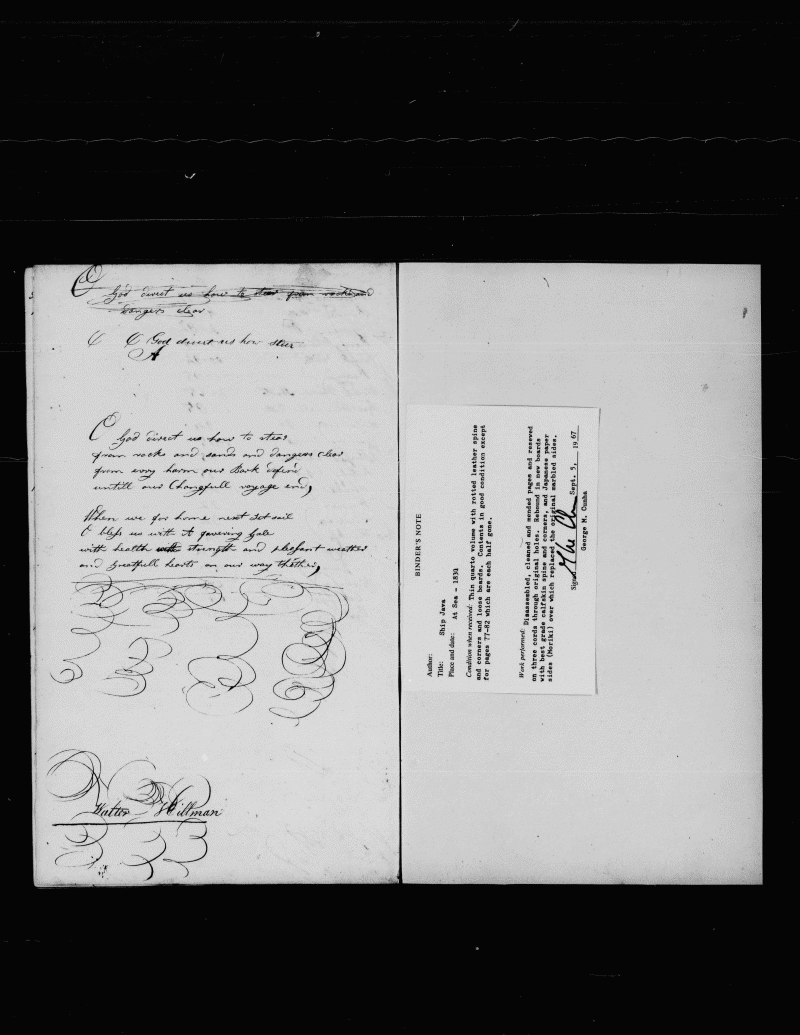 O God direct us how to stear from rocks and
dangers clear
O O God direct us how stear
A
O God direct us how to stear
from rocks and sands and dangers clear
from evry harm our Bark defend
untill our Changfull voyage end,
When we for home next Set sail
O bless us with A favering Gale
with health with strength and pleasant weather
and Greatfull hearts on our way thether,
Walter Hillman
BINDER'S NOTE
Author:
Title: Ship Java
Place and date: At Sea - 1839
Condition when received: Thin quarto volume with rotted leather spine
and corners and loose boards. Contents in good condition except
for pages 77-82 which are each half gone.
Work performed: Disassembled, cleaned and mended pages and resewed
on three cords through original holes. Rebound in new boards
with best grade calfskin spine and corners, and Japanese paper
sides (Moriki) over which replaced the original marbled sides.
Signed Sept. 5, 1967
George M. Cunha